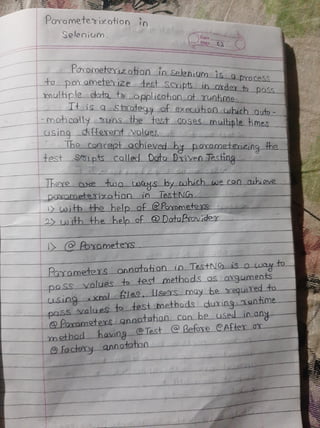 Parameterization in
Selenium.
Parameterization in selenium is a process
to parameterize test scripts in order to pass
multiple data to application at runtime.
It is a strategy of execution which auto-
matically runs the test cases multiple times
using different values.
The concept achieved by parameterizing the
test scripts called Data Driven Testing.
There are two ways by which we can achieve
parameterization in TestNG
1> with the help of @Parameters
2>> with the help of @DataProvider
1> @ Parameters
Parameters annotation in TestNG is a way to
pass values to test methods as arguments
using .xml files. Users may be required to
pass values to test methods during runtime
@Parameters annotation can be used in any
method having @Test @ Before @After or
@ factory annotation